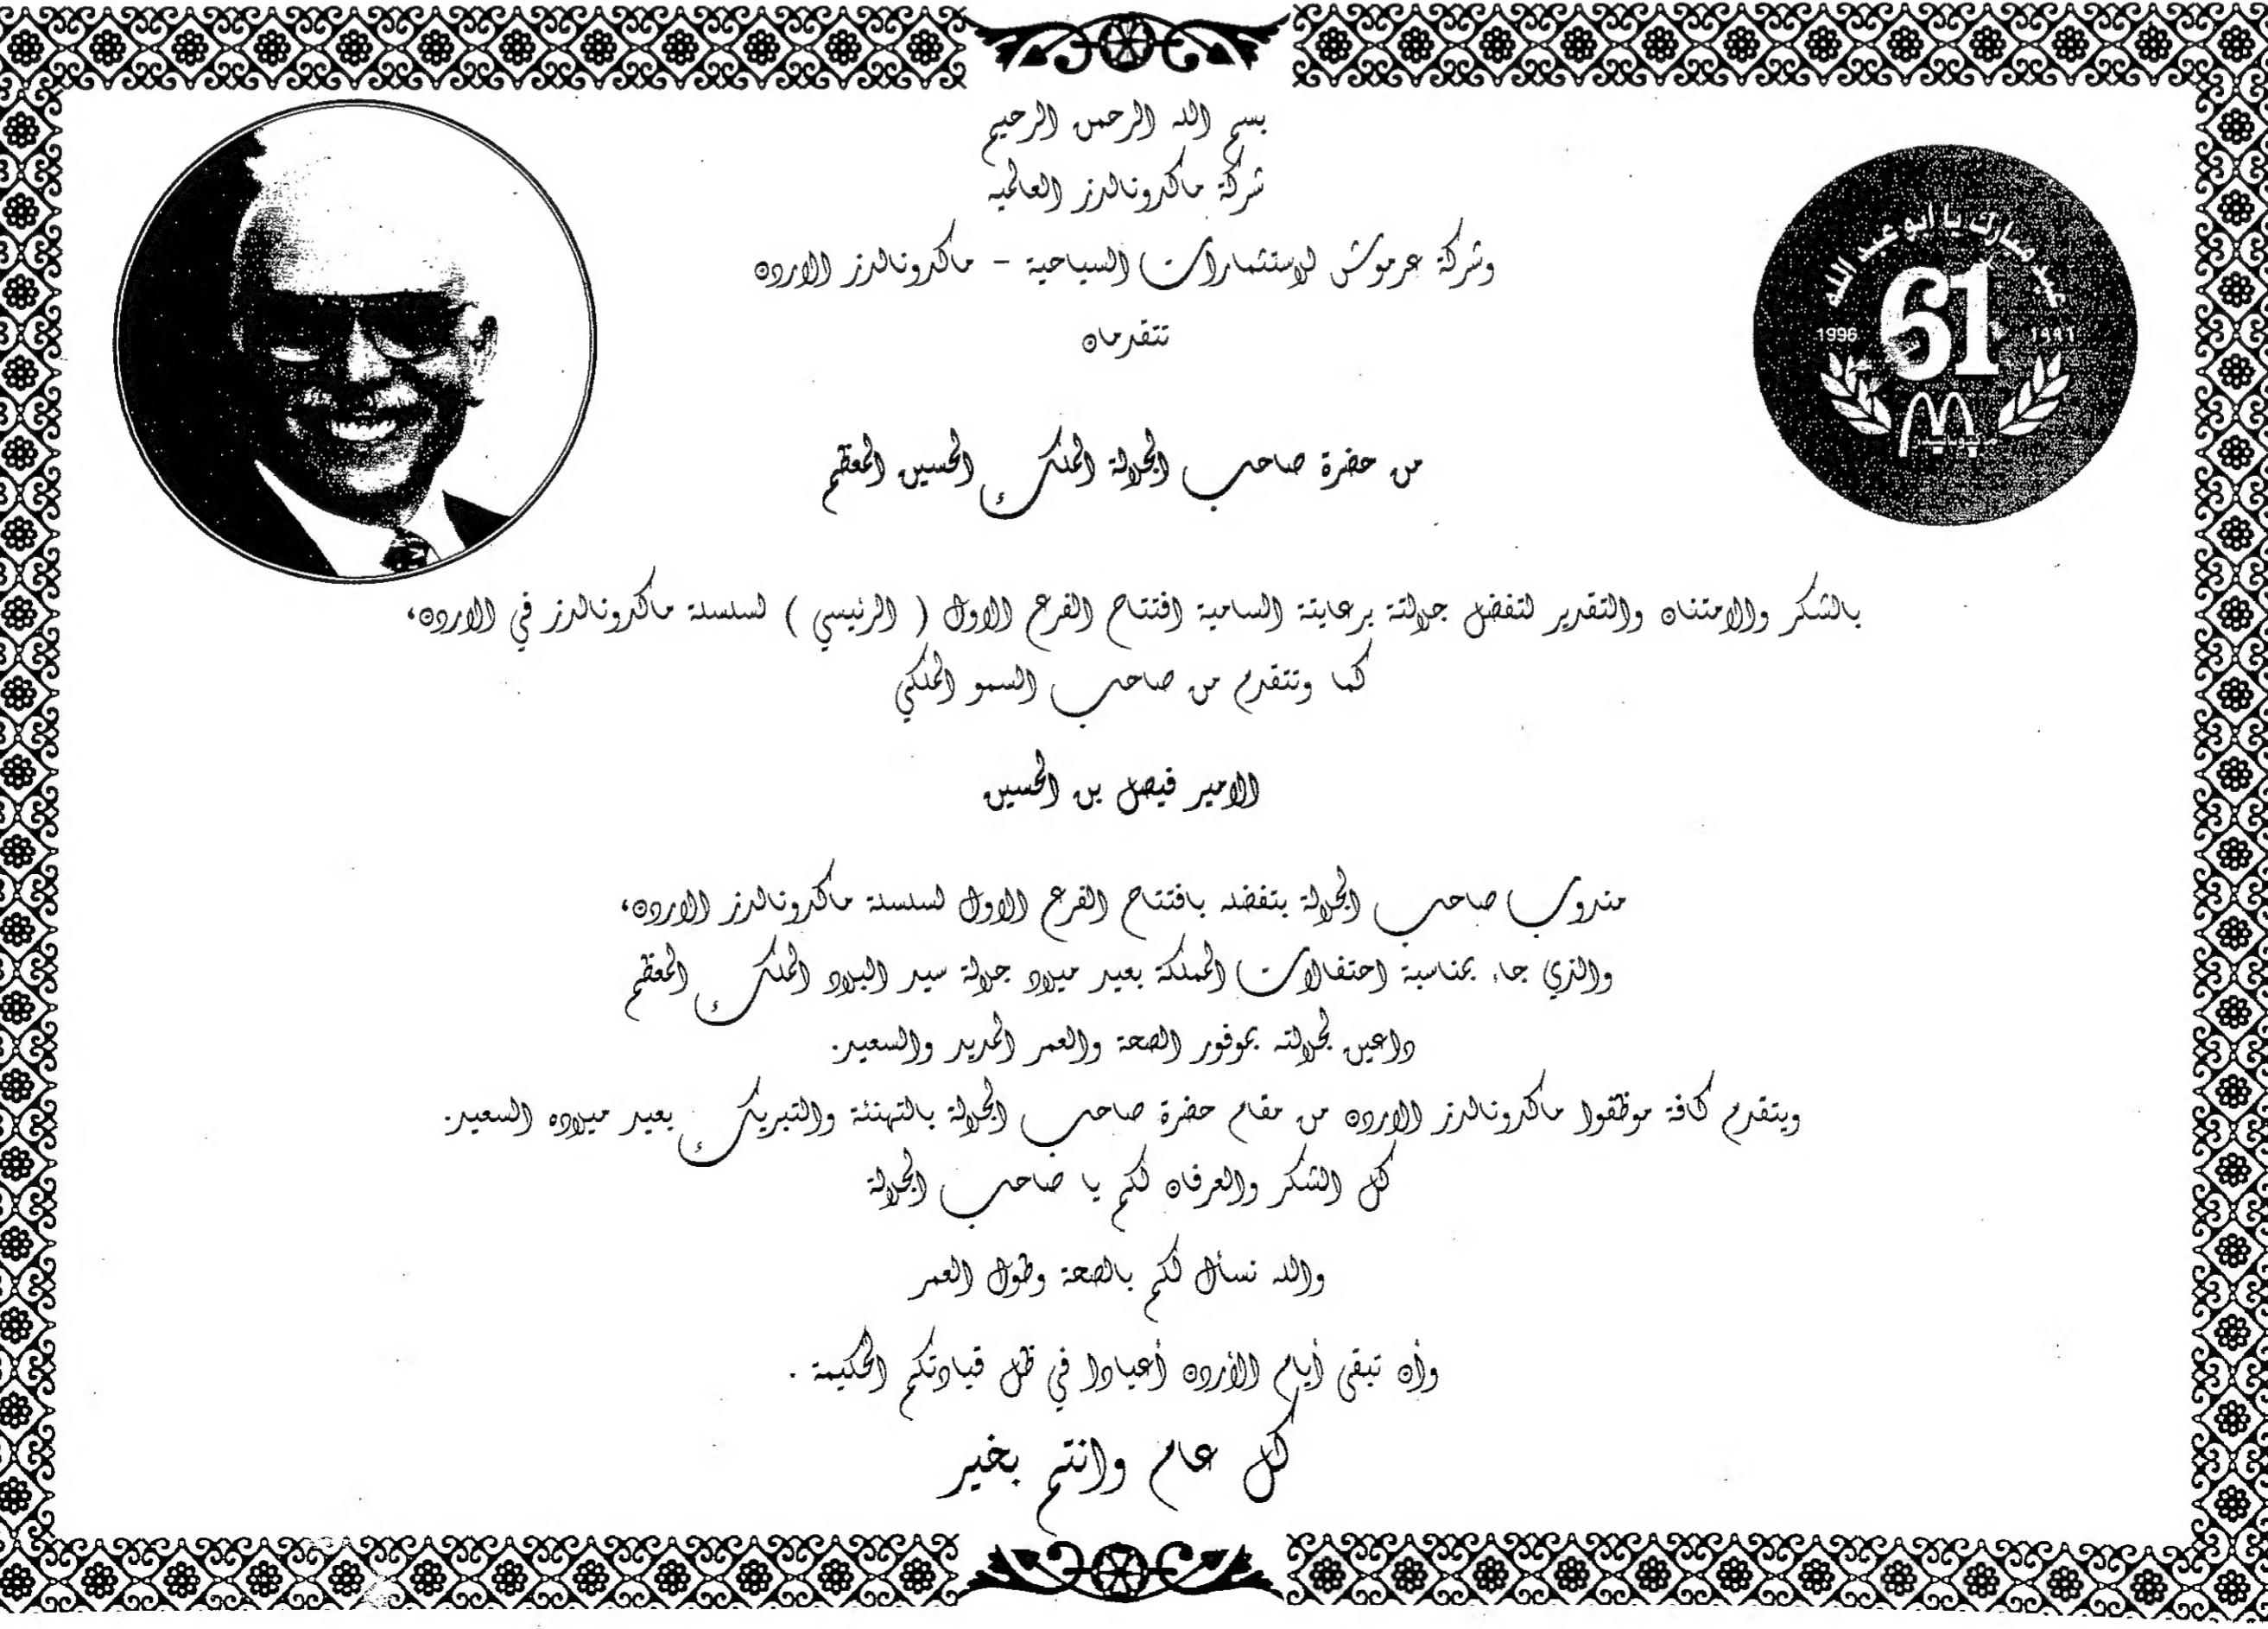 بسم الله الرحمن الرحيم
شركة ماكدونالدز العالمية
وشركة عرموش للإستثمارات السياحية - ماكدونالدز الاردن
تتقدمان
من حضرة صاحب الجلالة الملك الحسين المعظم
بالشكر والامتنان والتقدير لتفضل جلالتة برعايتة السامية افتتاح الفرع الاول ( الرئيسي ) لسلسلة ماكدونالدز في الاردن،
كما وتتقدم من صاحب السمو الملكي
الامير فيصل بن الحسين
مندوب صاحب الجلالة بتفضله بافتتاح الفرع الاول لسلسلة ماكدونالدز الاردن،
والذي جاء بمناسبة احتفالات المملكة بعيد ميلاد جلالة سيد البلاد الملك المعظم
داعين لجلالته بموفور الصحة والعمر المديد والسعيد.
ويتقدم كافة موظفوا ماكدونالدز الاردن من مقام حضرة صاحب الجلالة بالتهنئة والتبريك بعيد ميلاده السعيد.
كل الشكر والعرفان لكم يا صاحب الجلالة
والله نسأل لكم بالصحة وطول العمر
وأن تبقى أيام الأردن أعيادا في ظل قيادتكم الحكيمة .
كل عام وانتم بخير
مبارك يا ابو عبد الله
1996 61 ١٩٩٦